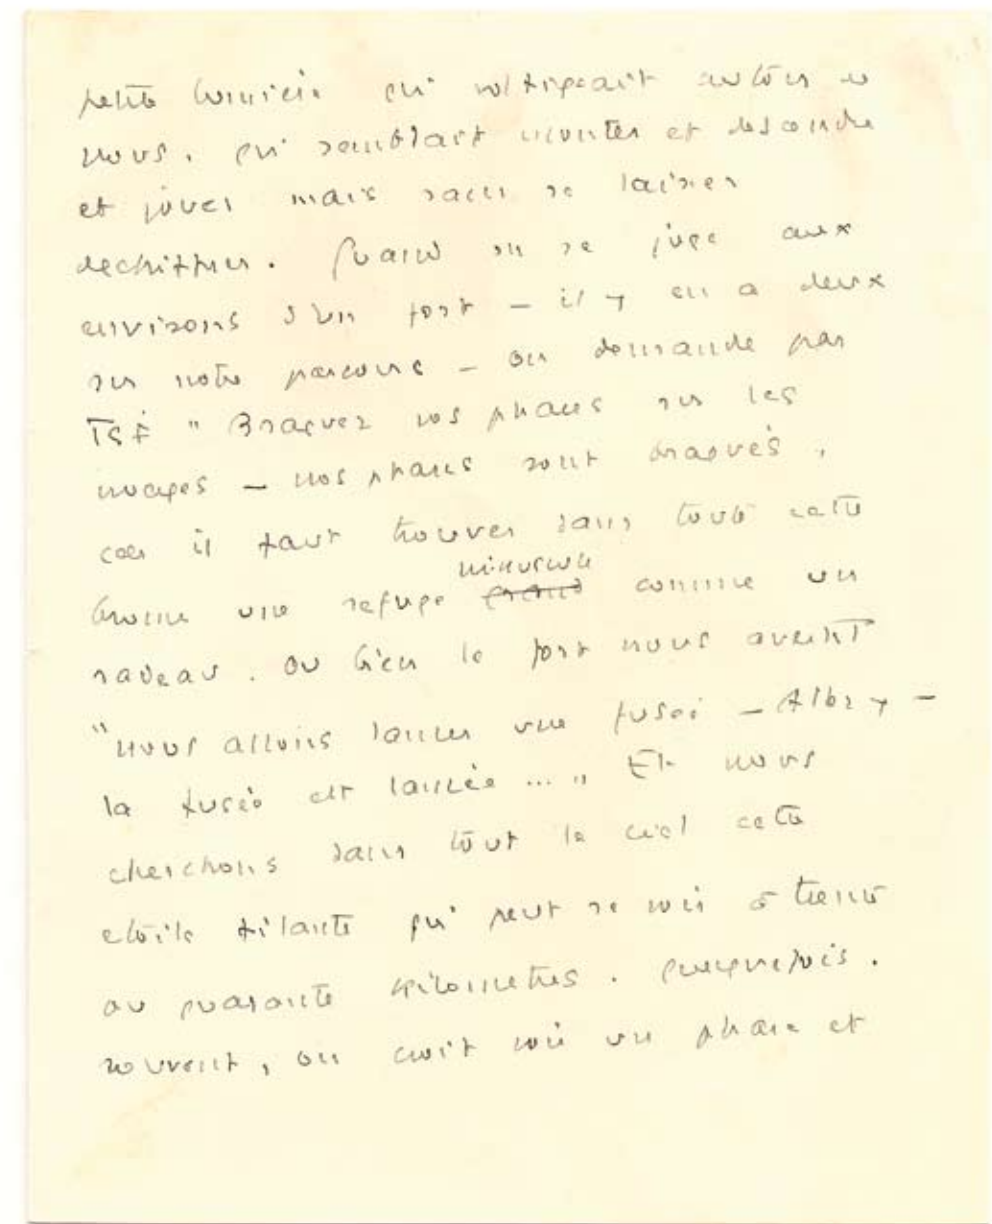 petite lumière qui voltigeait autour de
nous, qui semblait monter et descendre
et jouer mais sans se laisser
dechiffrer. Quand on se juge aux
environs d'un port – il y en a deux
sur notre parcours – on demande par
TSF " Braquez vos phares sur les
nuages – nos phares sont braqués,
car il faut trouver dans toute cette
brume une refuge minuscule comme un
radeau. Ou bien le port nous avertit
"nous allons lancer une fusée –
la fusée est lancée ... " Et nous
cherchons dans tout le ciel cette
etoile filante qui peut se voir à trente
ou quarante kilometres. Quelquefois.
souvent, on croit voir un phare et